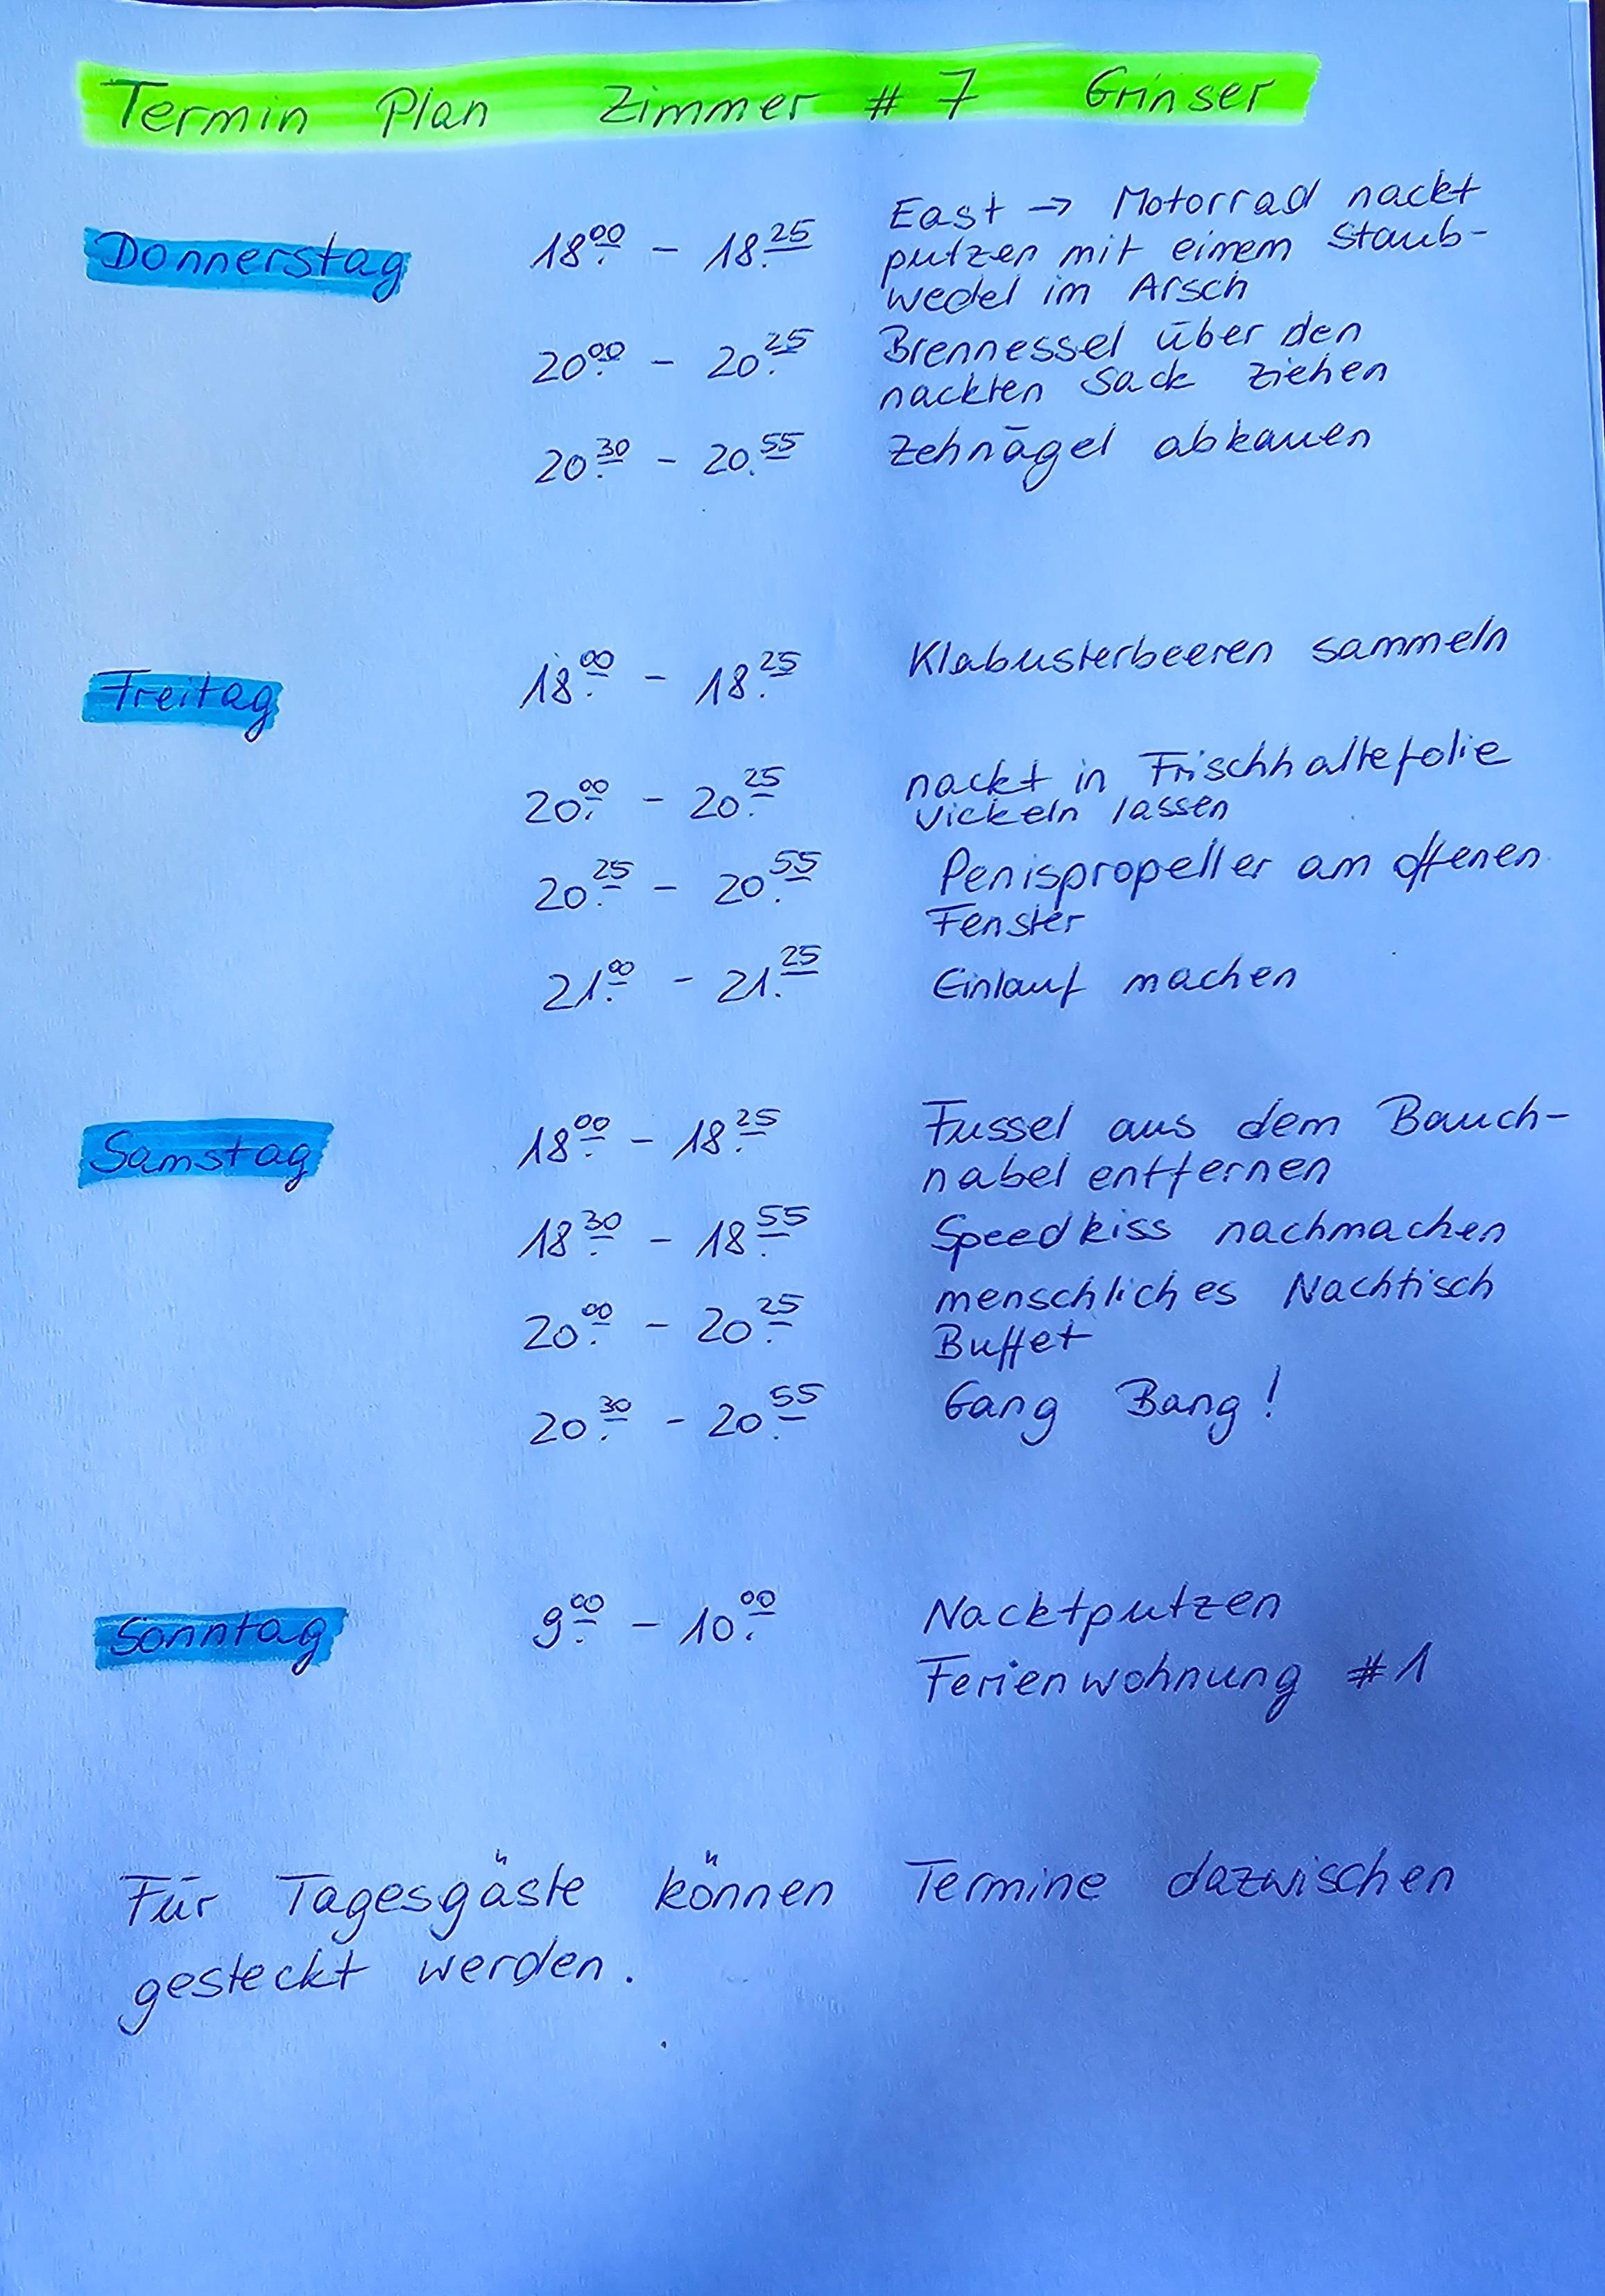 Termin Plan Zimmer # 7 Grinser
Donnerstag 18.00 - 18.25 East → Motorrad nackt
putzen mit einem Staub-
wedel im Arsch
20.00 - 20.25 Brennessel über den
nackten Sack ziehen
20.30 - 20.55 Zehnägel abkauen
Freitag 18.00 - 18.25 Klabusterbeeren sammeln
20.00 - 20.25 nackt in Frischhaltefolie
wickeln lassen
20.25 - 20.55 Penispropeller am offenen
Fenster
21.00 - 21.25 Einlauf machen
Samstag 18.00 - 18.25 Fussel aus dem Bauch-
nabel entfernen
18.30 - 18.55 Speedkiss nachmachen
20.00 - 20.25 menschliches Nachtisch
Buffet
20.30 - 20.55 Gang Bang!
Sonntag 9.00 - 10.00 Nacktputzen
Ferienwohnung #1
Für Tagesgäste können Termine dazwischen
gesteckt werden.